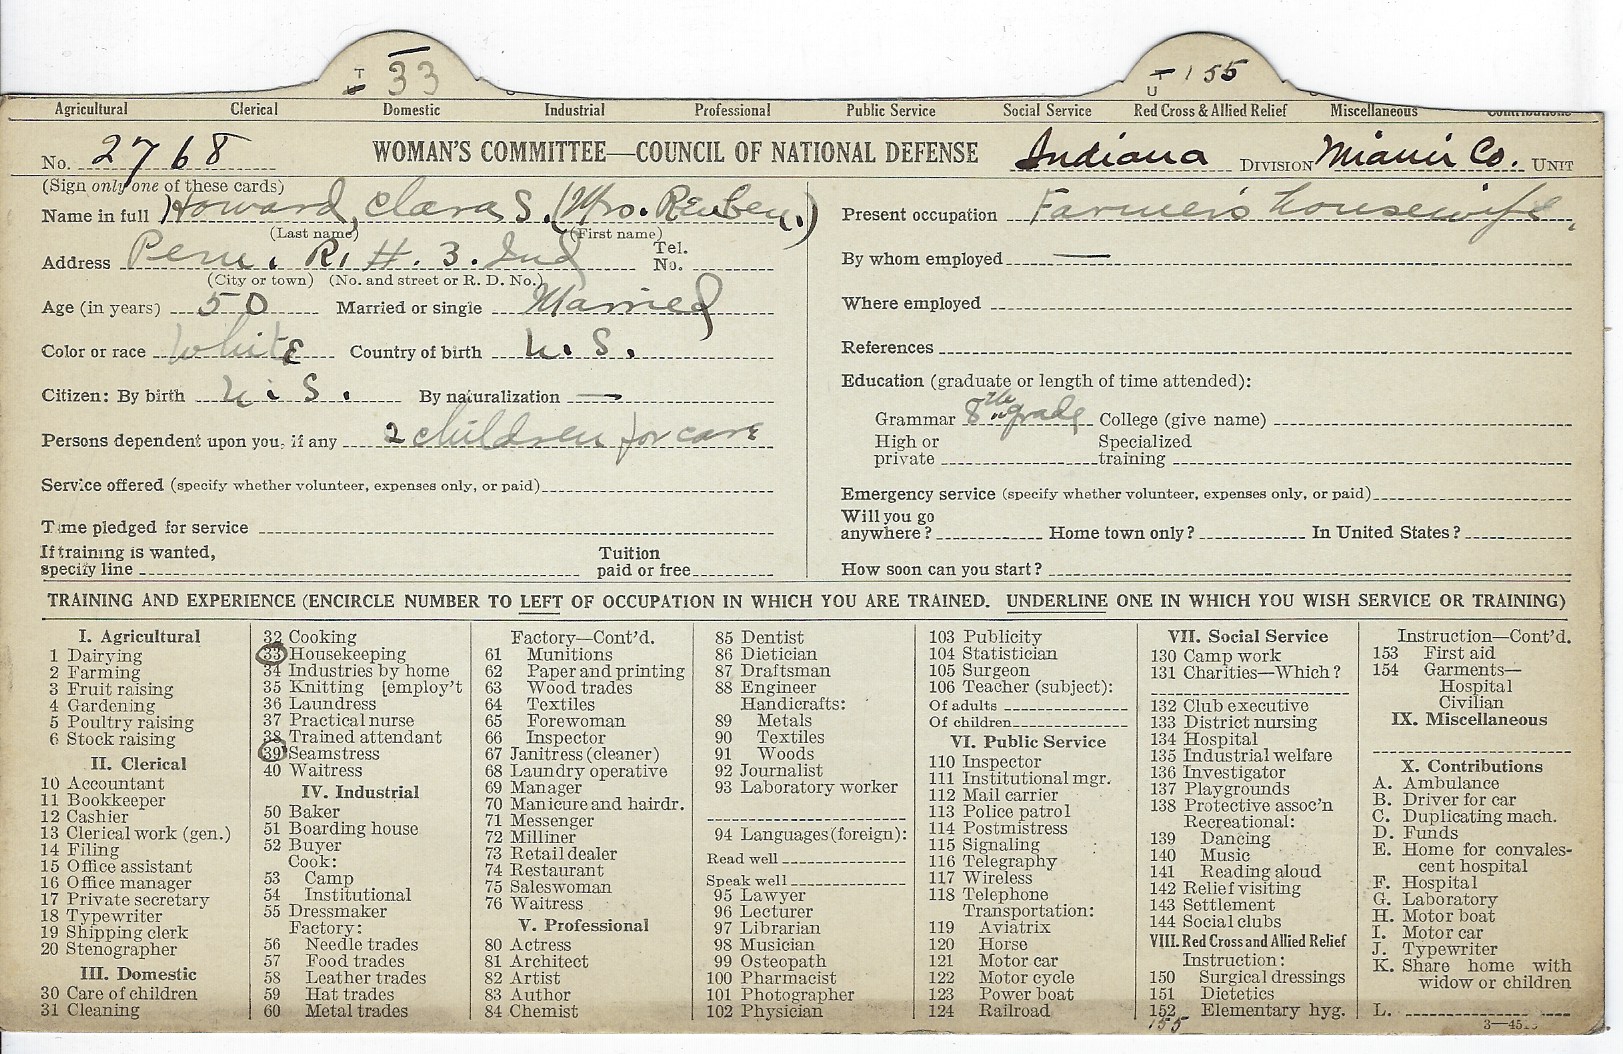 T 33 T 155
U U
Agricultural Clerical Domestic Industrial Professional Public Service Social Service Red Cross & Allied Relief Miscellaneous Contributions
No. 2768 WOMAN'S COMMITTEE—COUNCIL OF NATIONAL DEFENSE Indiana DIVISION Miami Co. UNIT
(Sign only one of these cards)
Name in full Howard, Clara S. (Mrs. Reuben.)
(Last name) (First name)
Address Peru, R. H. 3. Ind Tel. No.
(City or town) (No. and street or R. D. No.)
Age (in years) 50 Married or single Married
Color or race White Country of birth U. S.
Citizen: By birth U. S. By naturalization —
Persons dependent upon you, if any 2 children for care
Service offered (specify whether volunteer, expenses only, or paid)
Time pledged for service
If training is wanted, specify line Tuition paid or free
Present occupation Farmer's housewife,
By whom employed —
Where employed
References
Education (graduate or length of time attended):
Grammar 8th grade College (give name)
High or private Specialized training
Emergency service (specify whether volunteer, expenses only, or paid)
Will you go anywhere? Home town only? In United States?
How soon can you start?
TRAINING AND EXPERIENCE (ENCIRCLE NUMBER TO LEFT OF OCCUPATION IN WHICH YOU ARE TRAINED. UNDERLINE ONE IN WHICH YOU WISH SERVICE OR TRAINING)
I. Agricultural
1 Dairying
2 Farming
3 Fruit raising
4 Gardening
5 Poultry raising
6 Stock raising
II. Clerical
10 Accountant
11 Bookkeeper
12 Cashier
13 Clerical work (gen.)
14 Filing
15 Office assistant
16 Office manager
17 Private secretary
18 Typewriter
19 Shipping clerk
20 Stenographer
III. Domestic
30 Care of children
31 Cleaning
32 Cooking
33 Housekeeping
34 Industries by home
35 Knitting [employ't
36 Laundress
37 Practical nurse
38 Trained attendant
39 Seamstress
40 Waitress
IV. Industrial
50 Baker
51 Boarding house
52 Buyer
Cook:
53 Camp
54 Institutional
55 Dressmaker
Factory:
56 Needle trades
57 Food trades
58 Leather trades
59 Hat trades
60 Metal trades
Factory—Cont'd.
61 Munitions
62 Paper and printing
63 Wood trades
64 Textiles
65 Forewoman
66 Inspector
67 Janitress (cleaner)
68 Laundry operative
69 Manager
70 Manicure and hairdr.
71 Messenger
72 Milliner
73 Retail dealer
74 Restaurant
75 Saleswoman
76 Waitress
V. Professional
80 Actress
81 Architect
82 Artist
83 Author
84 Chemist
85 Dentist
86 Dietician
87 Draftsman
88 Engineer
Handicrafts:
89 Metals
90 Textiles
91 Woods
92 Journalist
93 Laboratory worker
94 Languages (foreign):
Read well
Speak well
95 Lawyer
96 Lecturer
97 Librarian
98 Musician
99 Osteopath
100 Pharmacist
101 Photographer
102 Physician
103 Publicity
104 Statistician
105 Surgeon
106 Teacher (subject):
Of adults
Of children
VI. Public Service
110 Inspector
111 Institutional mgr.
112 Mail carrier
113 Police patrol
114 Postmistress
115 Signaling
116 Telegraphy
117 Wireless
118 Telephone
Transportation:
119 Aviatrix
120 Horse
121 Motor car
122 Motor cycle
123 Power boat
124 Railroad
VII. Social Service
130 Camp work
131 Charities—Which?
132 Club executive
133 District nursing
134 Hospital
135 Industrial welfare
136 Investigator
137 Playgrounds
138 Protective assoc'n
Recreational:
139 Dancing
140 Music
141 Reading aloud
142 Relief visiting
143 Settlement
144 Social clubs
VIII. Red Cross and Allied Relief
Instruction:
150 Surgical dressings
151 Dietetics
152 Elementary hyg.
155
Instruction—Cont'd.
153 First aid
154 Garments—
Hospital
Civilian
IX. Miscellaneous
X. Contributions
A. Ambulance
B. Driver for car
C. Duplicating mach.
D. Funds
E. Home for convales-
cent hospital
F. Hospital
G. Laboratory
H. Motor boat
I. Motor car
J. Typewriter
K. Share home with
widow or children
L.